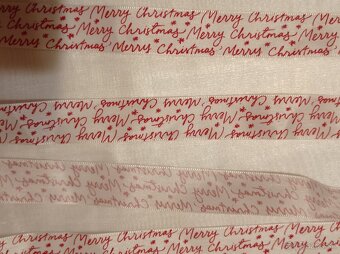 Merry Christmas Merry Christmas Merry Christmas
Christmas Merry Christmas Merry Christmas Merry
Merry Christmas Merry Christmas Merry Christmas
Merry Christmas Merry Christmas Merry Christmas
Christmas Merry Christmas Merry Christmas Merry
Merry Christmas Merry Christmas
Merry Christmas Merry Christmas
Merry Christmas Merry Christmas
Merry Christmas Merry Christmas
Christmas Merry Christmas Merry Christmas